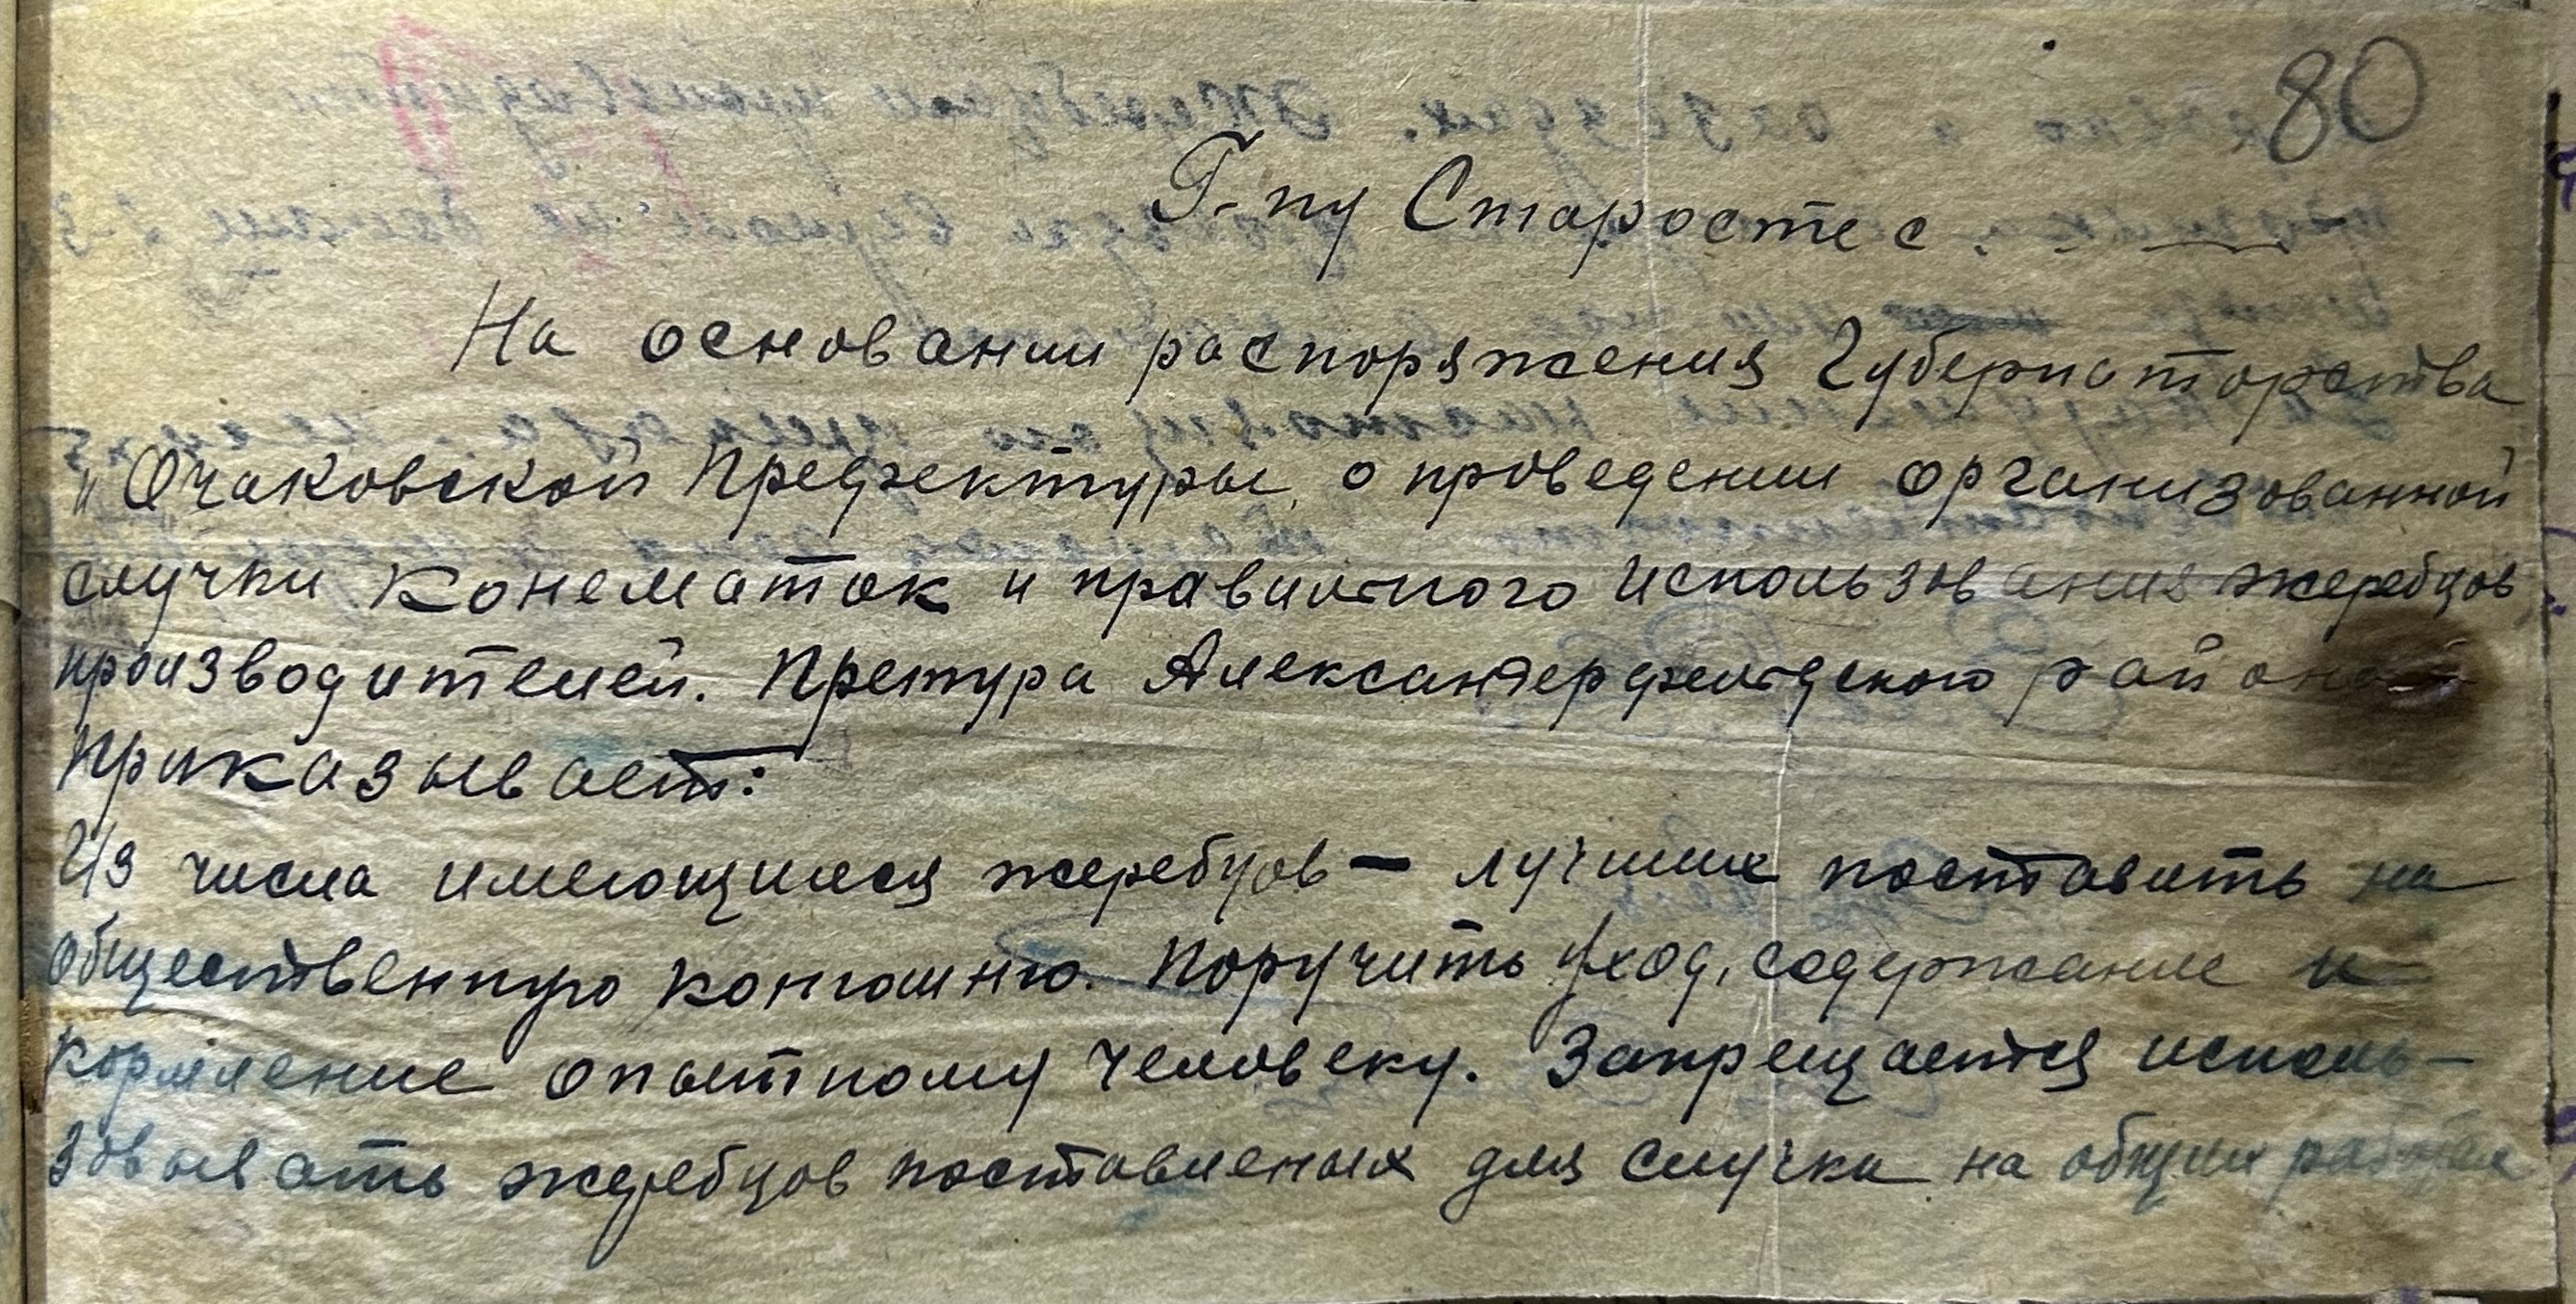 80
Г-ну Старосте с. . —
На основании распоряжения Губернаторства
и Очаковской Префектуры, о проведении организованной
случки конематок и правильного использования жеребцов
производителей. Претура Александерфельдского района
приказывает:
Из числа имеющихся жеребцов — лучших поставить на
общественную конюшню. Поручить уход, содержание и
кормление опытному человеку. Запрещается исполь-
зовывать жеребцов поставленых для случки на общих работах